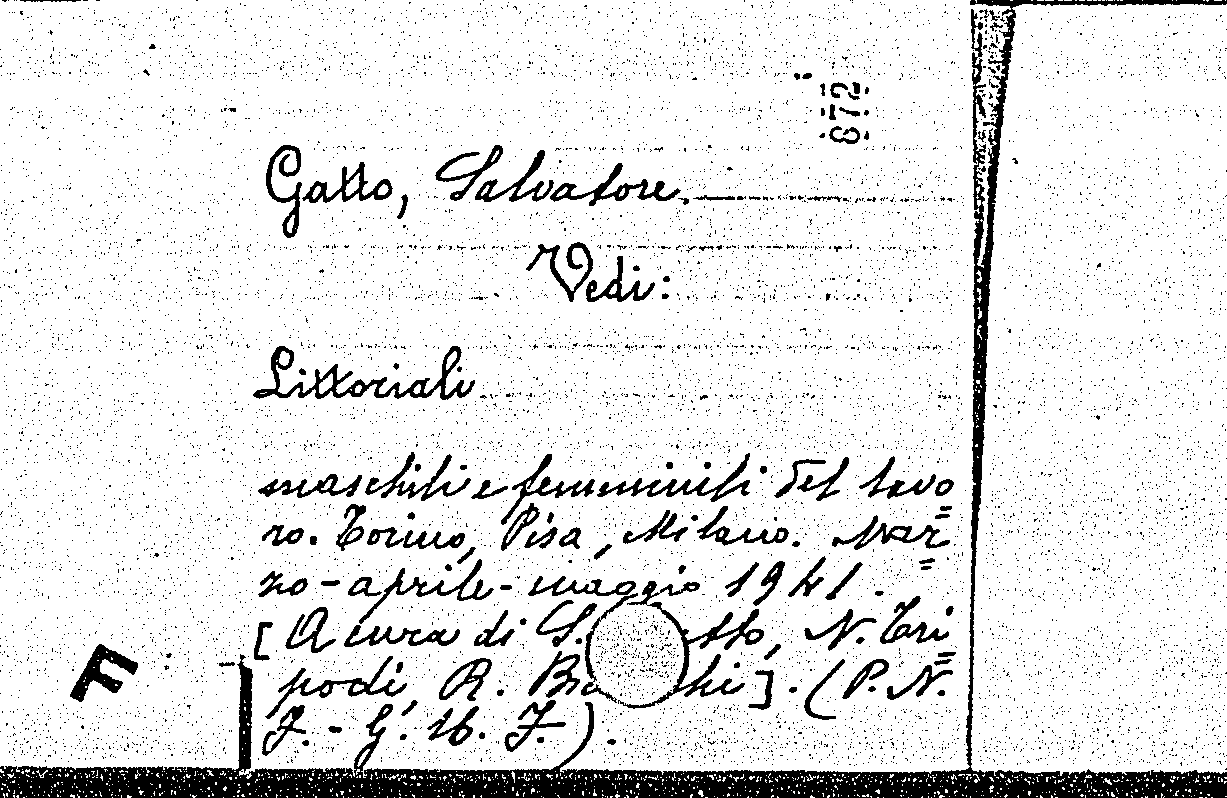 872
Gatto, Salvatore.
Vedi:
Littoriali
maschili e femminili del lavo=
ro. Torino, Pisa, Milano. Mar=
zo-aprile-maggio 1941.
[A cura di S. tto, N. Tri=
podi, R. hi]. (P.N.
F.-G.U.F.).
F